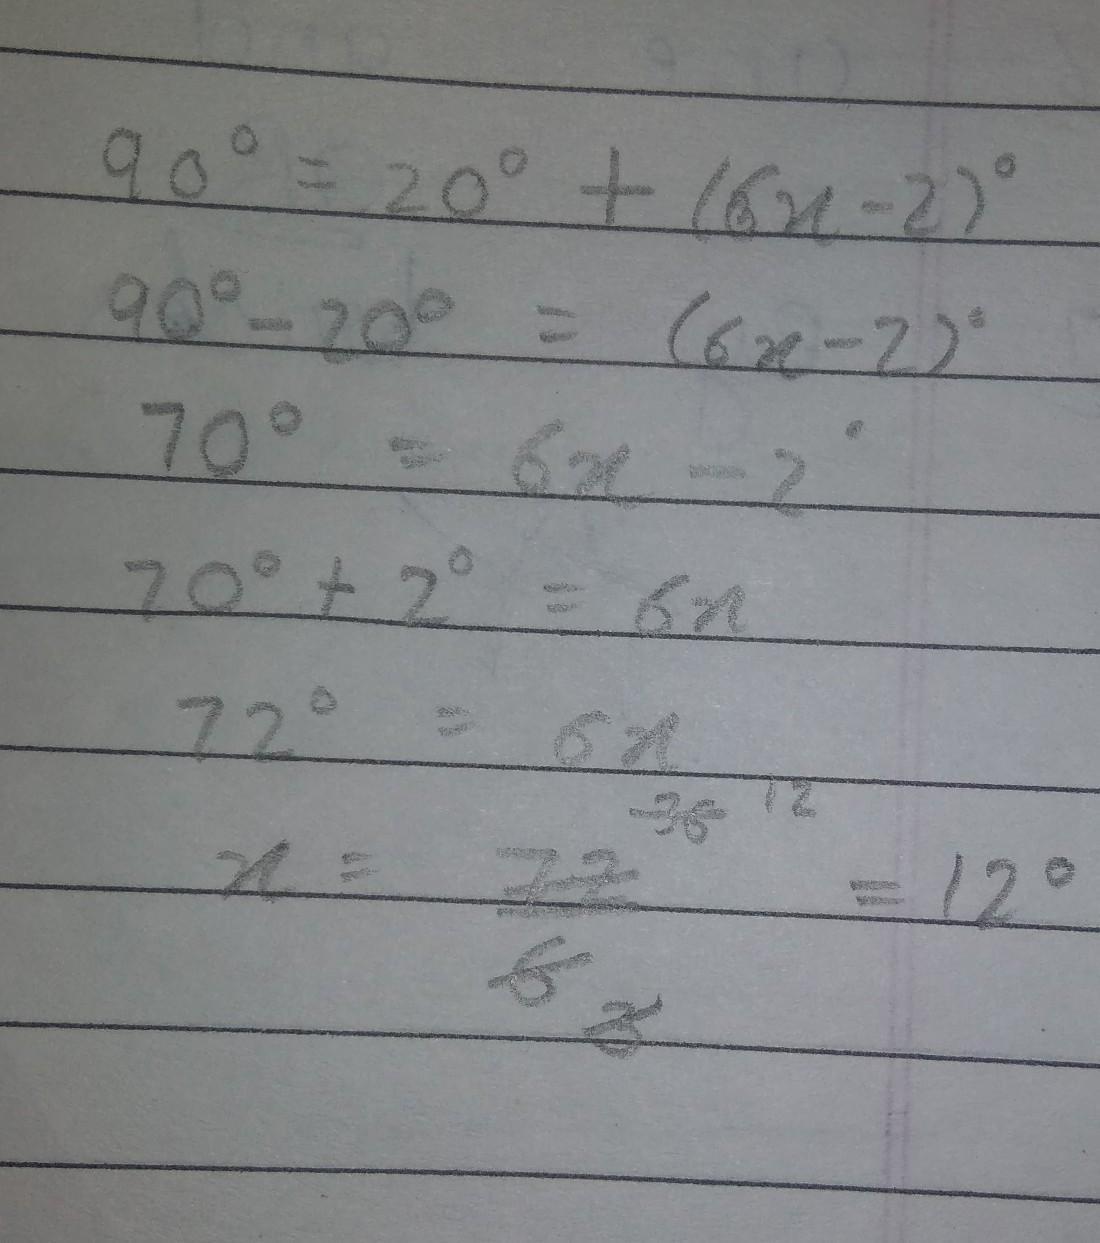 90° = 20° + (6x-2)°
90°-20° = (6x-2)°
70° = 6x - 2°
70° + 2° = 6x
72° = 6x
36 12
x = 72 = 12°
6 3